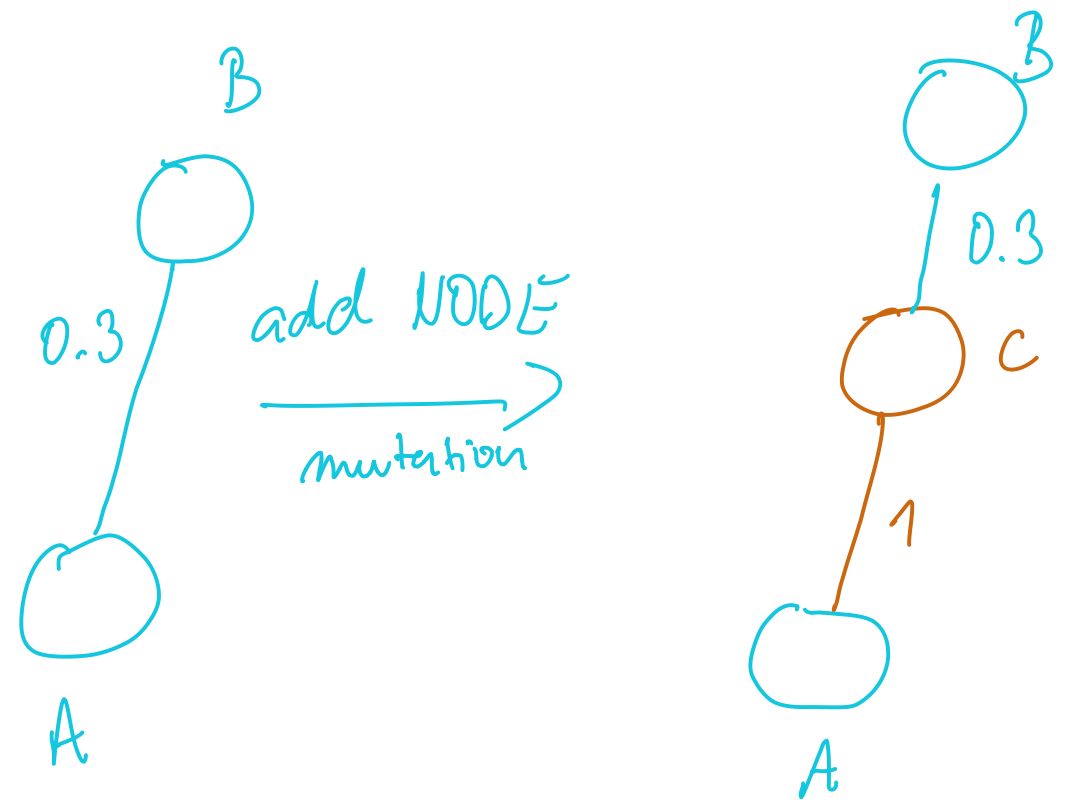 B
0.3
A
add NODE
mutation
B
0.3
C
1
A